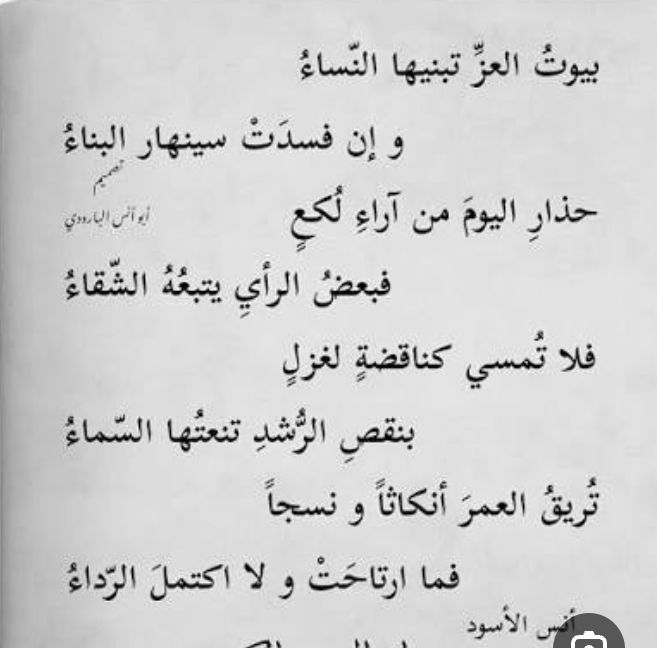 بيوتُ العزِّ تبنيها النّساءُ
و إن فسدَتْ سينهار البناءُ
تصميم
أبو أنس البارودي
حذارِ اليومَ من آراءِ لُكعٍ
فبعضُ الرأيِ يتبعُهُ الشّقاءُ
فلا تُمسي كناقضةٍ لغزلٍ
بنقصِ الرُّشدِ تنعتُها السّماءُ
تُريقُ العمرَ أنكاثاً و نسجاً
فما ارتاحَتْ و لا اكتملَ الرّداءُ
أنس الأسود